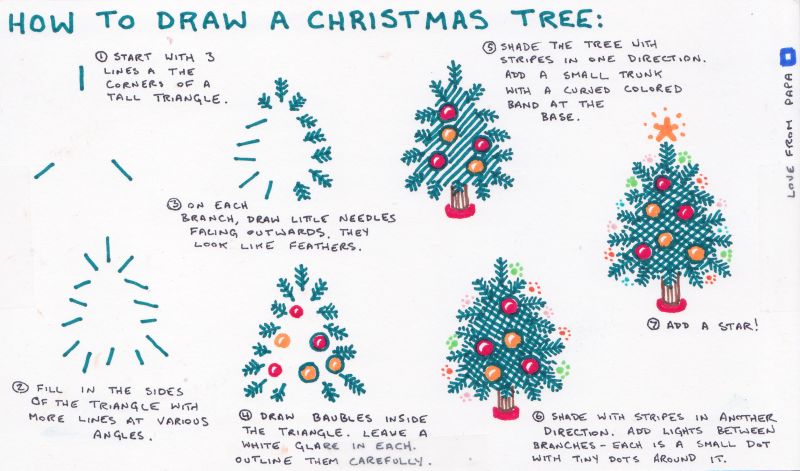 HOW TO DRAW A CHRISTMAS TREE:
① START WITH 3
LINES A THE
CORNERS OF A
TALL TRIANGLE.
② FILL IN THE SIDES
OF THE TRIANGLE WITH
MORE LINES AT VARIOUS
ANGLES.
③ ON EACH
BRANCH, DRAW LITTLE NEEDLES
FACING OUTWARDS. THEY
LOOK LIKE FEATHERS.
④ DRAW BAUBLES INSIDE
THE TRIANGLE. LEAVE A
WHITE GLARE IN EACH.
OUTLINE THEM CAREFULLY.
⑤ SHADE THE TREE WITH
STRIPES IN ONE DIRECTION.
ADD A SMALL TRUNK
WITH A CURVED COLORED
BAND AT THE
BASE.
⑥ SHADE WITH STRIPES IN ANOTHER
DIRECTION. ADD LIGHTS BETWEEN
BRANCHES - EACH IS A SMALL DOT
WITH TINY DOTS AROUND IT.
⑦ ADD A STAR!
LOVE FROM PAPA